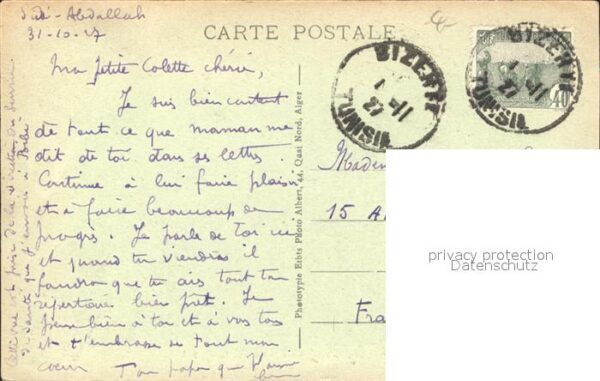 Sidi-Abdallah
31-10-27
CARTE POSTALE
Ma petite Colette chérie,
Je suis bien content
de tout ce que maman me
dit de toi dans ses lettres.
Continue à lui faire plaisir
et à faire beaucoup de
progrès. Je parle de toi ici
et quand tu viendras il
faudra que tu aies tout ton
répertoire bien prêt. Je
pense bien à toi et à vos tos
et t'embrasse de tout mon
coeur Ton papa qui t'aime
bien
Cette vue est prise de la
que j'envoie à
Phototypie Etbts Photo Albert, 44, Quai Nord, Alger
BIZERTE
TUNISIE
BIZERTE
TUNISIE
40
Madem
15 A
Fra
privacy protection
Datenschutz